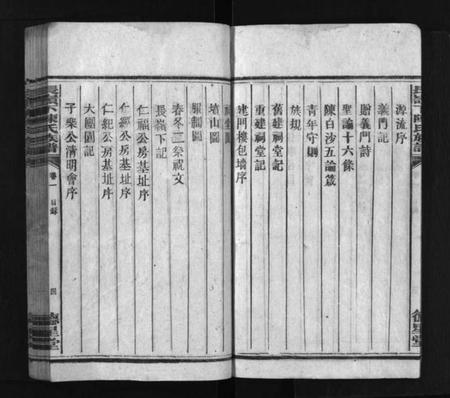 源流序
義門記
贈義門詩
聖諭十六條
陳白沙五論箴
青年守則
族規
舊建祠堂記
重建祠堂記
建門樓包墻序
祠堂圖
墳山圖
春冬二祭祝文
長嶺下記
仁福公房基址序
仁綱公房基址序
仁紀公房基址序
大團圓記
子榮公清明會序
陳氏族譜
卷一
目錄
四
德星堂
德星堂